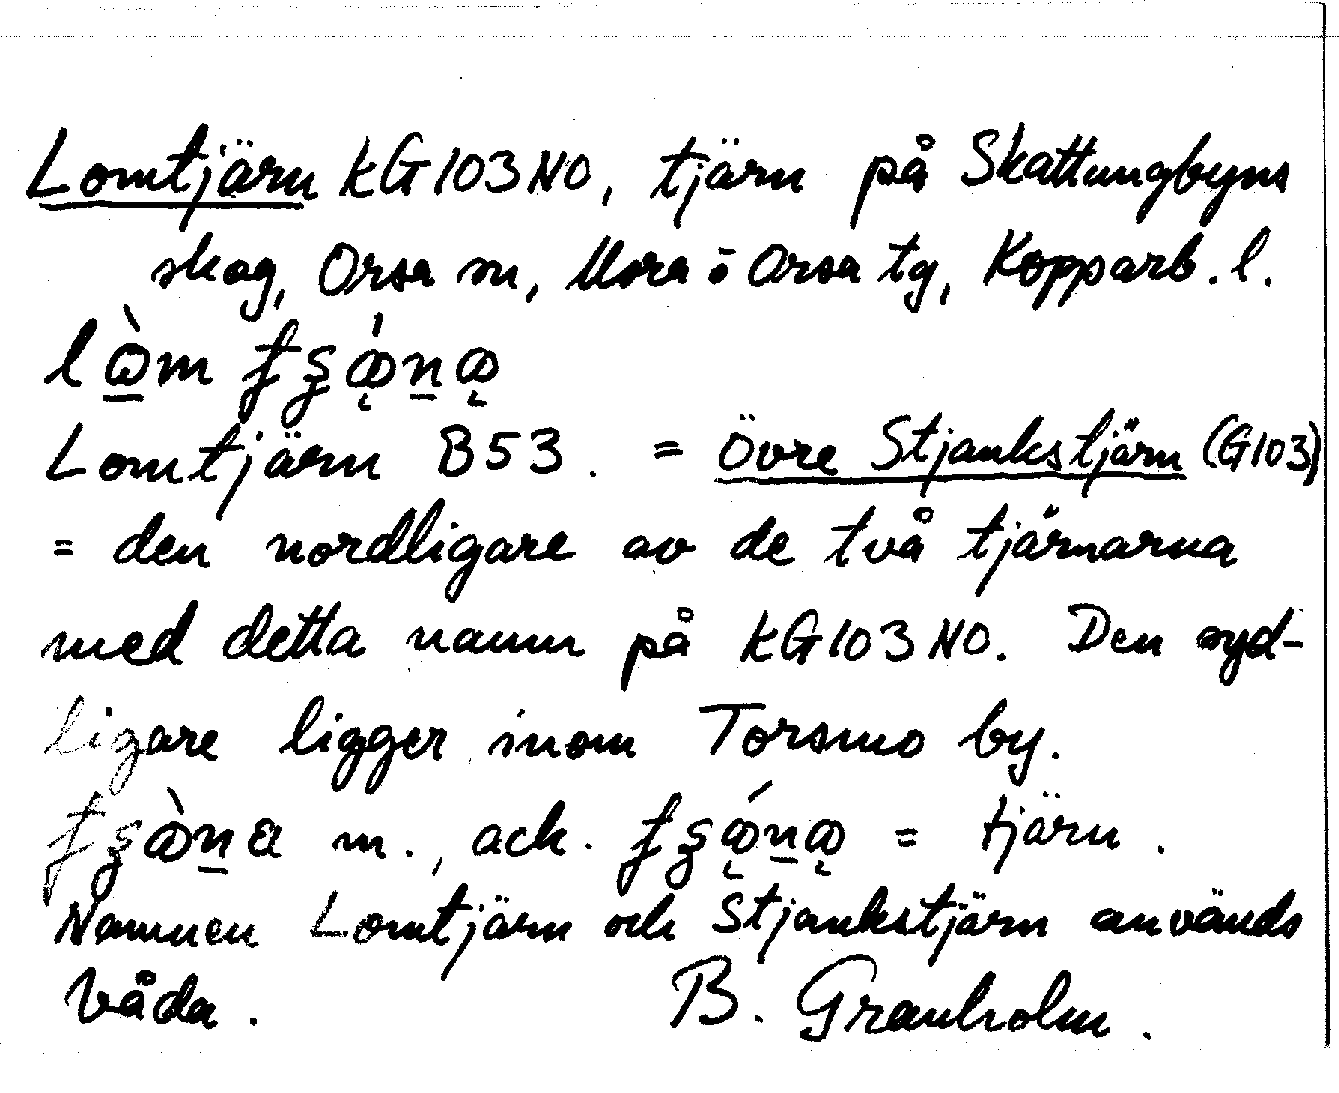 Lomtjärn kG103NO, tjärn på Skattungbyns
skog, Orsa sn, Mora o Orsa tg, Kopparb. l.
Lomtjärn B53. = Övre Stjankstjärn (G103)
= den nordligare av de två tjärnarna
med detta namn på kG103NO. Den syd-
ligare ligger inom Torsmo by.
m., ack. = tjärn.
Namnen Lomtjärn och Stjankstjärn används
båda. B. Granholm.